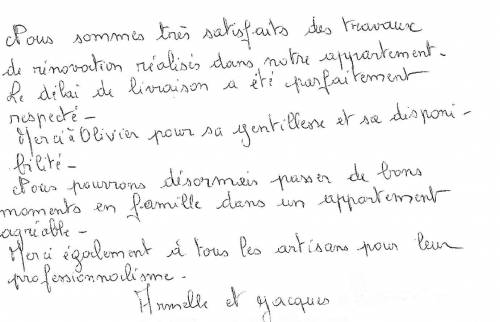 Nous sommes très satisfaits des travaux
de rénovation réalisés dans notre appartement.
Le délai de livraison a été parfaitement
respecté -
Merci à Olivier pour sa gentillesse et sa disponi -
bilité -
Nous pourrons désormais passer de bons
moments en famille dans un appartement
agréable -
Merci également à tous les artisans pour leur
professionnalisme.
Armelle et Jacques